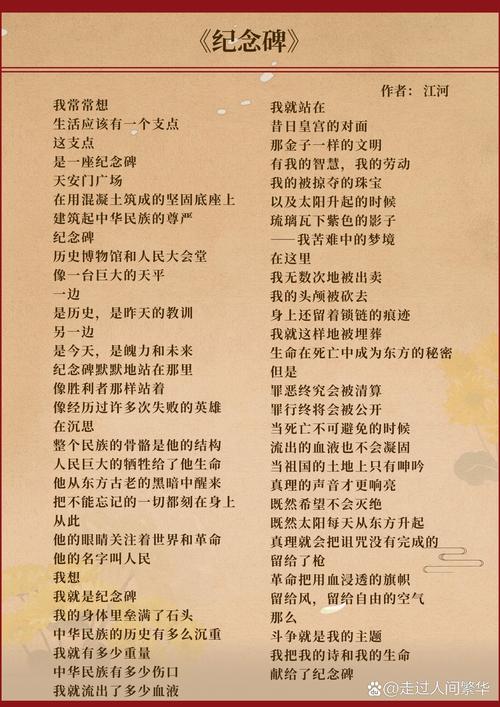 《纪念碑》
作者：江河
我常常想
生活应该有一个支点
这支点
是一座纪念碑
天安门广场
在用混凝土筑成的坚固底座上
建筑起中华民族的尊严
纪念碑
历史博物馆和人民大会堂
像一台巨大的天平
一边
是历史，是昨天的教训
另一边
是今天，是魄力和未来
纪念碑默默地站在那里
像胜利者那样站着
像经历过许多次失败的英雄
在沉思
整个民族的骨骼是他的结构
人民巨大的牺牲给了他生命
他从东方古老的黑暗中醒来
把不能忘记的一切都刻在身上
从此
他的眼睛关注着世界和革命
他的名字叫人民
我想
我就是纪念碑
我的身体里垒满了石头
中华民族的历史有多么沉重
我就有多少重量
中华民族有多少伤口
我就流出了多少血液
我就站在
昔日皇宫的对面
那金子一样的文明
有我的智慧，我的劳动
我的被掠夺的珠宝
以及太阳升起的时候
琉璃瓦下紫色的影子
——我苦难中的梦境
在这里
我无数次地被出卖
我的头颅被砍去
身上还留着锁链的痕迹
我就这样地被埋葬
生命在死亡中成为东方的秘密
但是
罪恶终究会被清算
罪行终将会被公开
当死亡不可避免的时候
流出的血液也不会凝固
当祖国的土地上只有呻吟
真理的声音才更响亮
既然希望不会灭绝
既然太阳每天从东方升起
真理就会把诅咒没有完成的
留给了枪
革命把用血浸透的旗帜
留给风，留给自由的空气
那么
斗争就是我的主题
我把我的诗和我的生命
献给了纪念碑
百家号@走过人间繁华